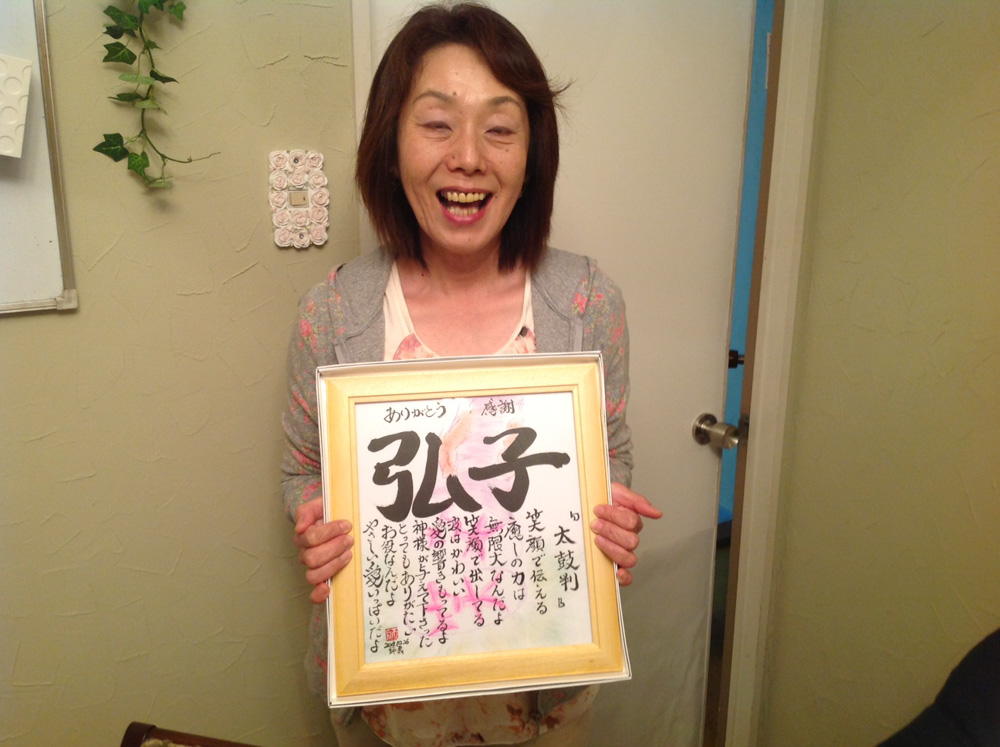 ありがとう 感謝
弘子
"太鼓判"
笑顔で伝える
癒しの力は
無限大なんだよ
笑顔で出してる
波はかわいい
愛の響きもってるよ
神様が与えて下さった
とってもありがたい
お役なんだよ
やさしい愛いっぱいだよ